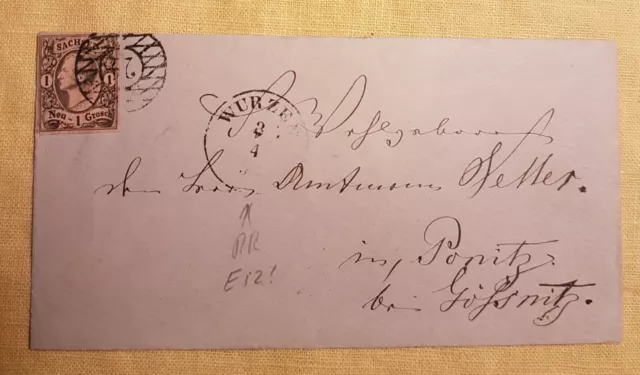 SACHSEN
1 1
Neu - 1 Grosch
2
WURZEN
3
4
Sr. Wohlgeboren
dem Herrn Amtmann Vetter.
in, Ponitz.
bei Gößnitz.
RR
E12!